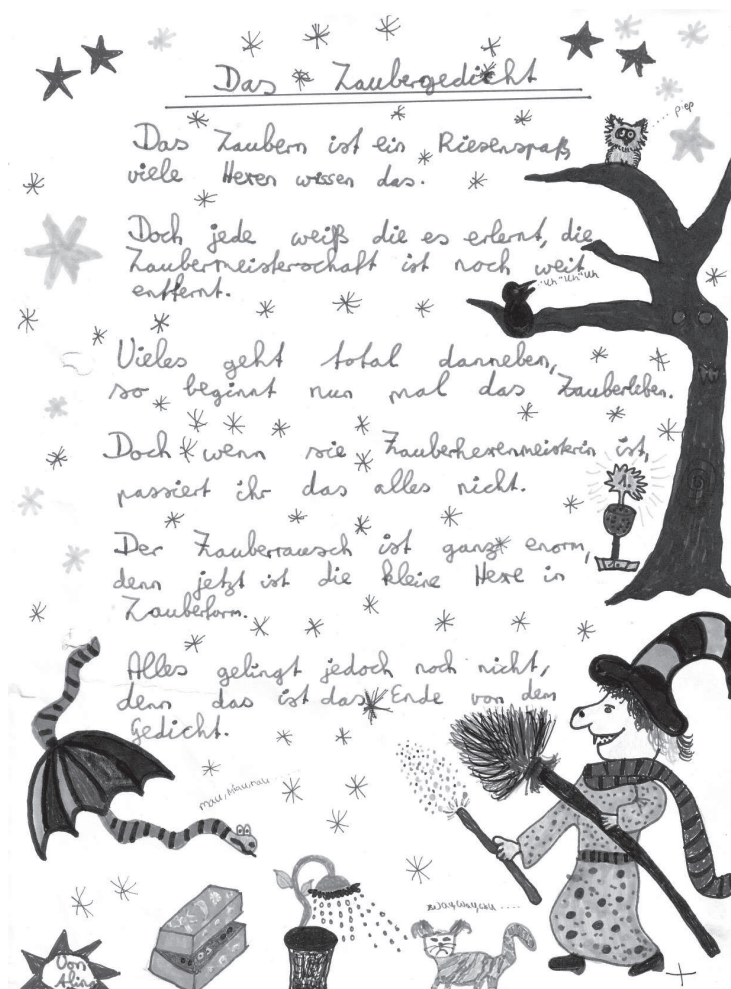 Das Zaubergedicht
piep
Das Zaubern ist ein Riesenspaß,
viele Hexen wissen das.
Doch jede weiß die es erlernt, die
Zaubermeisterschaft ist noch weit
entfernt.
"Uh" "Uh" "Uh
Vieles geht total danneben,
so beginnt nun mal das Zauberleben.
Doch wenn sie Zauberhexenmeisterin ist,
passiert ihr das alles nicht.
1.
Der Zauberrausch ist ganz enorm,
denn jetzt ist die kleine Hexe in
Zauberform.
Alles gelingt jedoch noch nicht,
denn das ist das Ende von dem
Gedicht.
Von
Alina